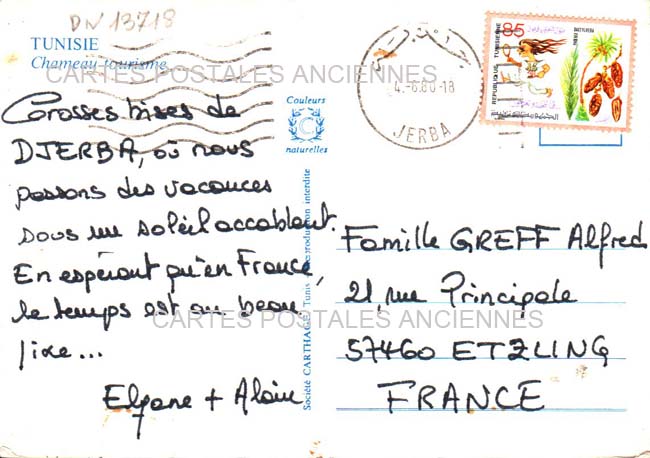 DN 13718
TUNISIE
Chameau tourisme
CARTES POSTALES ANCIENNES
Grosses bises de
DJERBA, où nous
passons des vacances
sous un soleil accablant.
En espérant qu'en France,
le temps est au beau
fixe...
Elyane + Alain
Couleurs
C
naturelles
Société CARTHAGE Tunis - Reproduction interdite
4.-6.80-18
JERBA
REPUBLIQUE TUNISIENNE
85
Famille GREFF Alfred
21, rue Principale
CARTES POSTALES ANCIENNES
57460 ETZLING
FRANCE